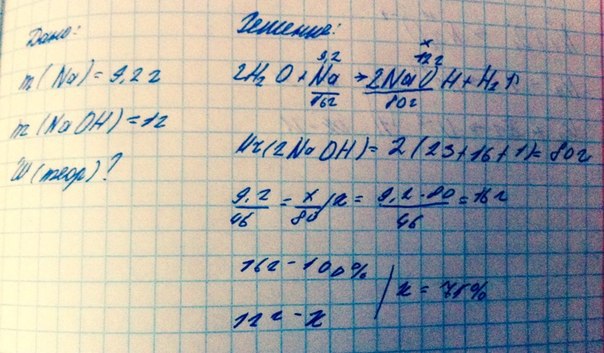 Дано:
m(Na)=9,2 г
m(NaOH)=12
W(теор)?
Решение:
9,2 x 12 г
2H₂O + Na → 2NaOH + H₂↑
46г 80г
Mr(2NaOH)=2(23+16+1)=80г
9,2/46 = x/80 / x = 9,2·80/46 = 16г
16г – 100%
12г – x / x = 75%